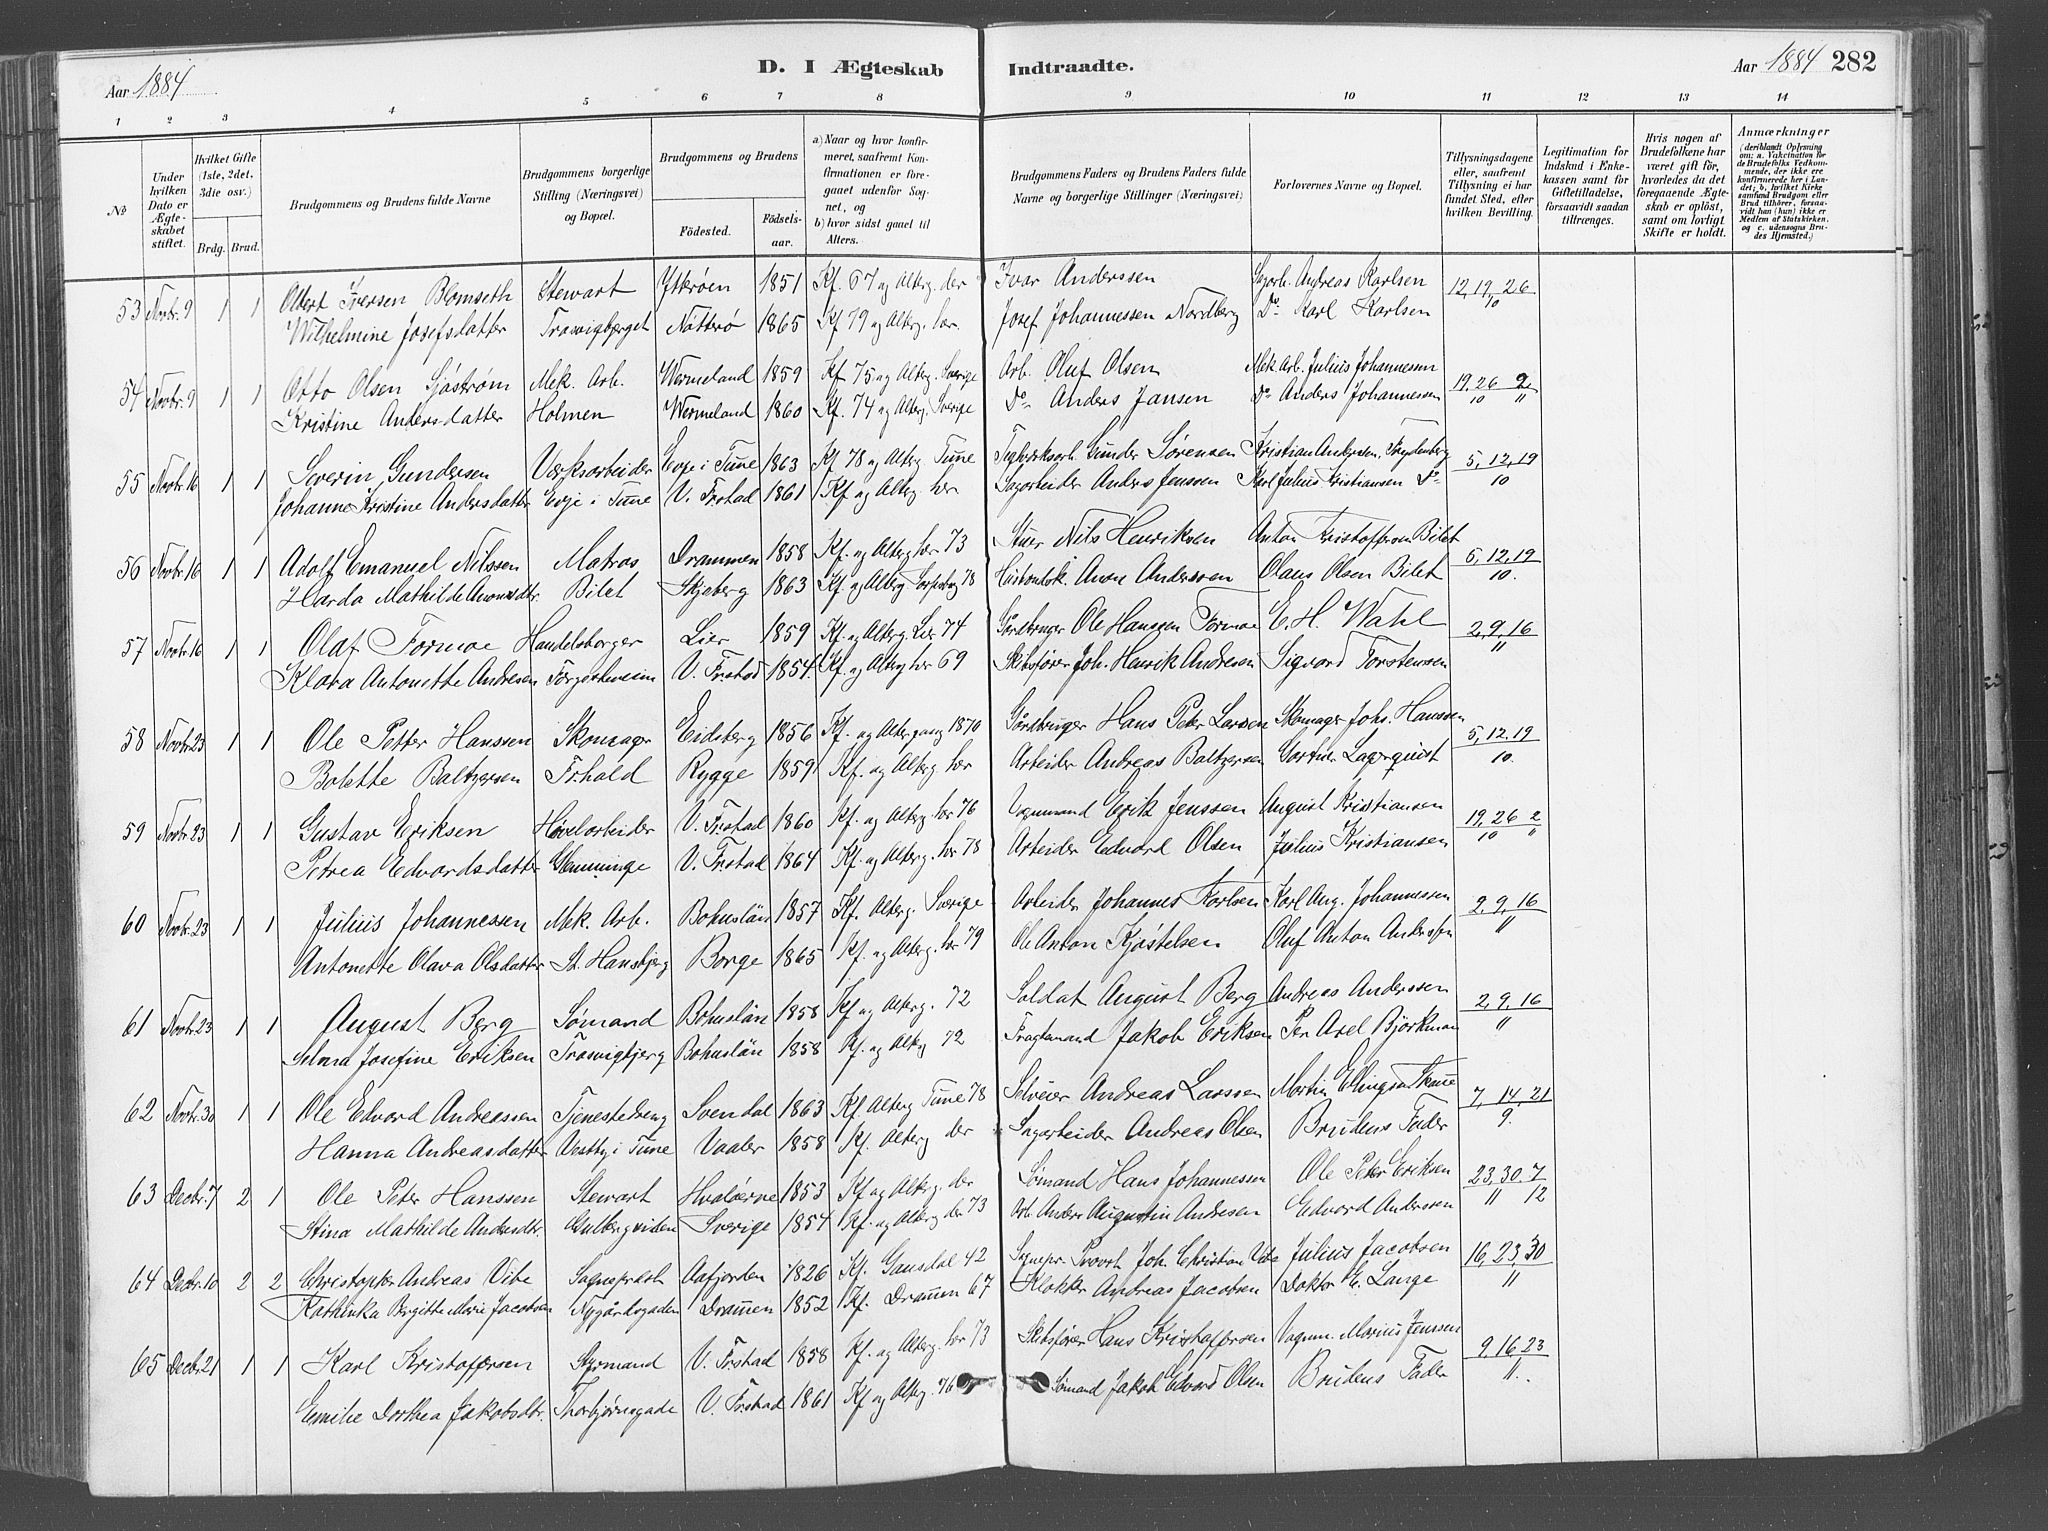 Aar 1884
D. I Ægteskab Indtraadte.
Aar 1884 282
1 2 3 4 5 6 7 8 9 10 11 12 13 14
No
Under hvilken Dato er Ægteskabet stiftet.
Hvilket Gifte (1ste, 2det, 3die osv.)
Brdg. Brud.
Brudgommens og Brudens fulde Navne
Brudgommens borgerlige Stilling (Næringsvei) og Bopæl.
Brudgommens og Brudens
Födested. Födselsaar.
a) Naar og hvor konfirmeret, saafremt Konfirmationen er foregaaet udenför Sognet, og
b) hvor sidst gaaet til Alters.
Brudgommens Faders og Brudens Faders fulde Navne og borgerlige Stillinger (Næringsvei)
Forlovernes Navne og Bopæl.
Tillysningsdagene eller, saafremt Tillysning ei har fundet Sted, efter hvilken Bevilling.
Legitimation for Indskud i Enkekassen samt for Giftetilladelse, forsaavidt saadan tiltrænges.
Hvis nogen af Brudefolkene har været gift för, hvorledes da det foregaaende Ægteskab er oplöst, samt om lovligt Skifte er holdt.
Anmærkninger
(deriblandt Oplysning om: a. Vakcination for de Brudefolks Vedkommende, der ikke ere konfirmerede her i Landet; b. hvilket Kirkesamfund Brudgom eller Brud tilhörer, forsaavidt han (hun) ikke er Medlem af Statskirken, og c. udensogns Brudes Hjemsted.)
53 Novbr. 9 1 1 Iversen Blomseth Stewart Ytterøen 1851 Kf. 67 og Alterg. der Ivar Anderssen Andreas Karlsen 12, 19, 26
Wilhelmine Josefsdatter Trosvigbjerget Nøtterø 1865 Kf 79 og Alterg. her. Josef Johannessen Nordberg Do. Karl Karlsen 10
54 Novbr. 9 1 1 Otto Olsen Sjöström Mek. Arb. Wermeland 1859 Kf 75 og Alterg. Sverige Arb. Oluf Olsen Mek Arb. Julius Johannessen 19. 26 2
Kristine Andersdatter Holmen Wermeland 1860 Kf. 74 og Alterg. Sverige Do. Anders Jansen Do Anders Johannessen 10 11
55 Novbr. 16 1 1 Severin Gundersen Værksarbeider Evje i Tune 1863 Kf 78 og Alterg Tune Teglværksarb. Gunder Sørensen Kristian Andersen, Frydenberg 5, 12, 19
Johanne Kristine Andersdatter Evje i Tune V. Frstad 1861 Kf. og Alterg. her Sagarbeider Anders Jenssen Karl Julius Kristiansen Do 10
56 Novbr. 16 1 1 Adolf Emanuel Nilssen Matros Drammen 1858 Kf. og Alterg her 73 Nils Henriksen Anton Kristoffersen Bilet 5, 12, 19
Harda Mathilde Bilet Skjeberg 1863 Kf. og Alterg Sarpsborg 78 Anderssen Olaus Olsen Bilet 10.
57 Novbr. 16 1 1 Olaf Formoe Handelsborger Lier 1859 Kf. og Alterg. Lier 74 Gårdbruger Ole Hanssen Formoe E. H. Wahl 2, 9, 16
Klara Antonette Andresen V. Frstad 1854. Kf. og Alterg her 69 Skibsfører Joh. Henrik Andresen Sigvard Torstenssen 11
58 Novbr. 23 1 1 Ole Petter Hanssen Skomager Eidsberg 1856 Kf. og Altergang 1870 Gårdbruger Hans Peter Larssen Skomager Johs. Hanssen 5, 12. 19
Bolette Baltzersen Frhald Rygge 1859 Kf. og Alterg. her Arbeider Andreas Baltzersen Gartner Lagerquist 10.
59 Novbr. 23 1 1 Gustav Eriksen Høvelarbeider V. Frstad 1860 Kf. og Alterg. her 76 Vognmand Erik Jenssen August Kristiansen 19, 26 2
Petrea Edvardsdatter Glemminge V. Frstad 1864 Kf. og Alterg. her 78 Arbeider Edvard Olsen Julius Kristiansen 10 11
60 Novbr. 23 1 1 Julius Johannessen Mek. Arb. Bohuslän 1857 Kf. Alterg. Sverige Arbeider Johannes Karlsen Karl Aug. Johannessen 2, 9, 16
Antonette Olava Olsdatter St. Hansbjerg Borge 1865 Kf. og Alterg. her 79 Ole Anton Kjøstelsen Oluf Anton Anderssen 11
61 Novbr. 23 1 1 August Berg Sømand Bohuslän 1858 Kf og Alterg. 72 Soldat August Berg Andreas Anderssen 2, 9, 16
Selma Josefine Eriksen Trosvigbjerg Bohuslän 1858 Kf. og Alterg 72 Fragtemand Jakob Eriksen Per Axel Björkman 11
62 Novbr. 30 1 1 Ole Edvard Andreassen Tjenestedreng Svendal 1863 Kf Alterg Tune 78 Selveier Andreas Larssen Martin Ellingsen 7, 14, 21
Hanna Andreasdatter i Tune Vaaler 1858 Kf. Alterg der Sagarbeider Andreas Olsen Brudens Fader 9.
63 Decbr. 7 2 1 Ole Peter Hanssen Stewart Hvaløerne 1853 Kf og Alterg. der Sømand Hans Johannessen Ole Peter Eriksen 23, 30. 7
Stina Mathilde Andersdtr. Gulbergviden Sverige 1854 Kf. og Alterg der 73 Arb. Anders Augustin Andresen Edvard Anderssen 11 12
64 Decbr. 10 2 2 Christopher Andreas Vibe Sogneprest Aafjorden 1826 Kf. Gausdal 42 Sognepr. Provst Joh. Christian Vibe Julius Jacobsen 16, 23, 30
Kathinka Birgitte Marie Jacobsen Nygårdsgaden Dramen 1852 Kf. Dramen 67 Klokker Andreas Jacobsen Doktor E. Lange 11
65 Decbr. 21 1 1 Karl Kristoffersen Styrmand V. Frstad 1858 Kf. og Alterg. her 73 Skibsfører Hans Kristoffersen Vognm. Marius Jenssen 9, 16, 23
Emilie Dorthea Jakobsdtr. Thorbjørnsgade V. Frstad 1861 Kf og Alterg. 76 Sømand Jakob Edvard Olsen Brudens Fader 11.